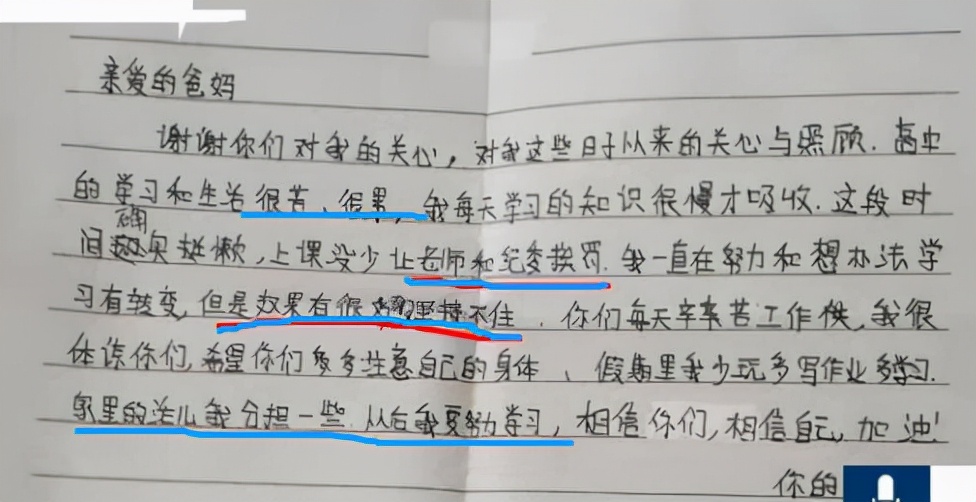 亲爱的爸妈
谢谢你们对我的关心,对我这些日子以来的关心与照顾.高中
的学习和生活很苦、很累,我每天学习的知识很慢才吸收.这段时
间确实挺懒,上课没少让老师和纪委挨罚.我一直在努力和想办法学
习有转变,但是效果有很坚持不住.你们每天辛辛苦工作快,我很
体谅你们,希望你们多多注意自己的身体、假期里我少玩多写作业多学习.
家里的活儿我分担一些.从后我要努力学习,相信你们,相信自己,加油!
你的